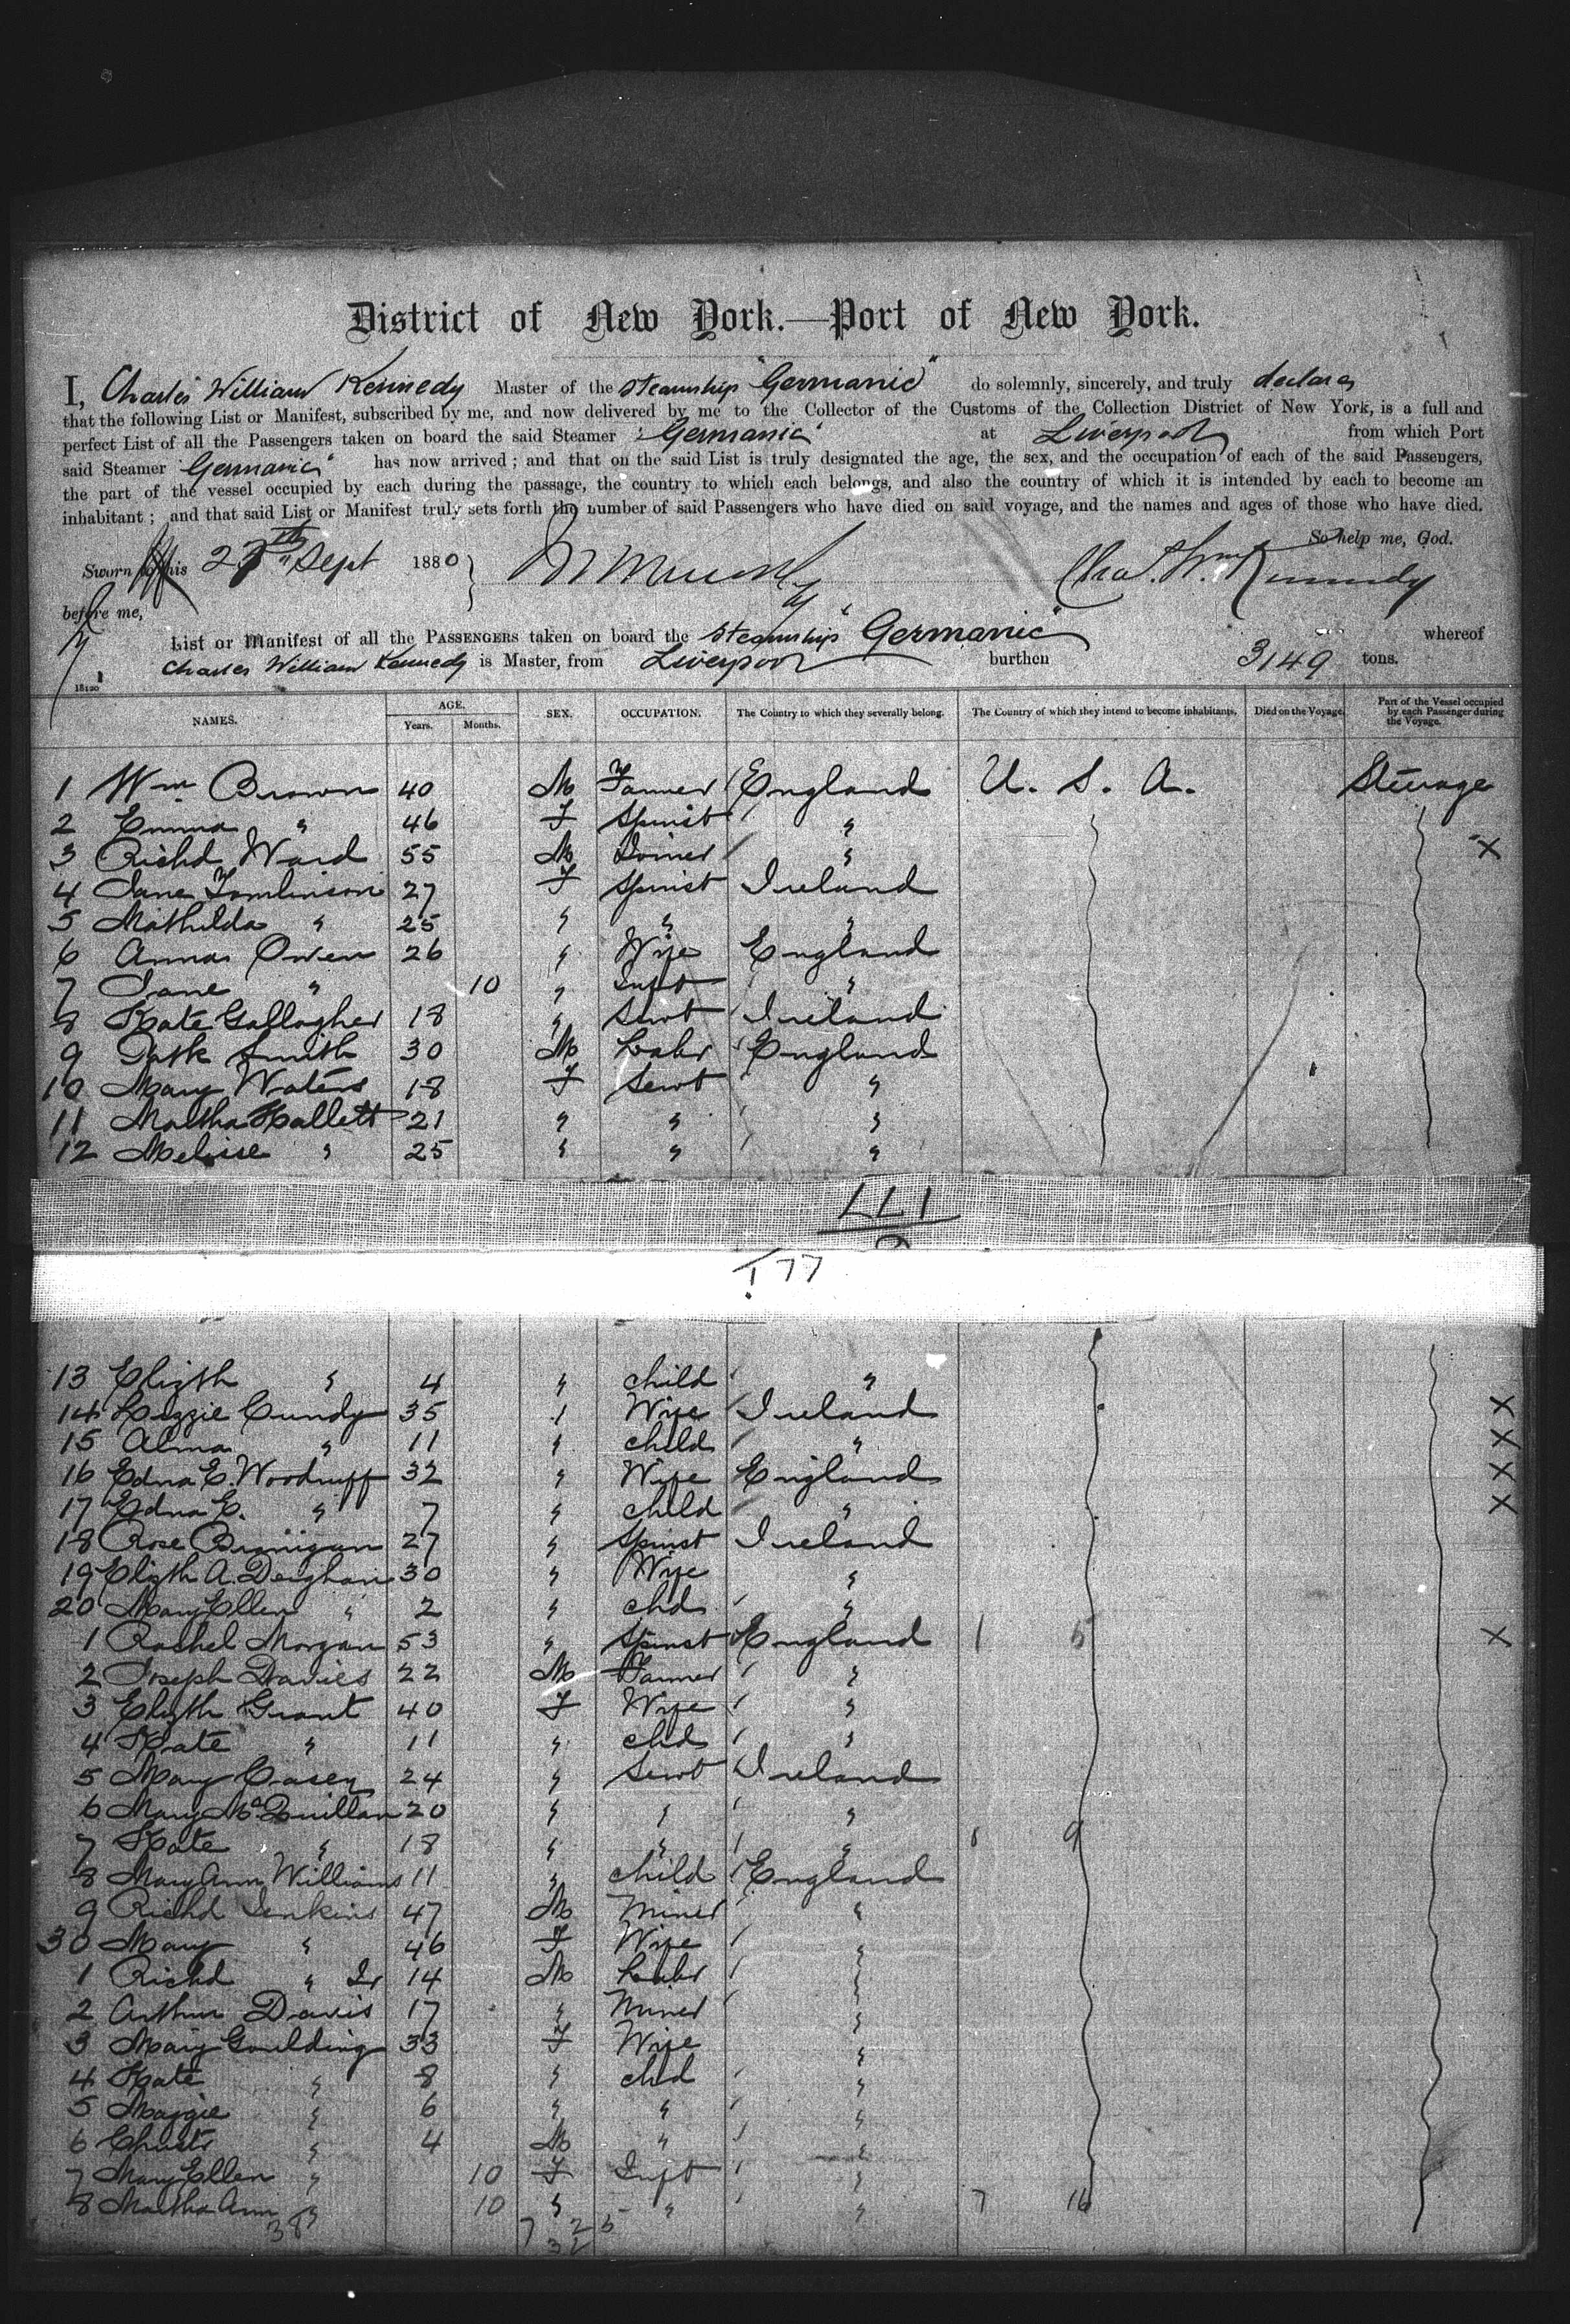 District of New York.—Port of New York.
I, Charles William Kennedy Master of the steamship "Germanic" do solemnly, sincerely, and truly declare
that the following List or Manifest, subscribed by me, and now delivered by me to the Collector of the Customs of the Collection District of New York, is a full and
perfect List of all the Passengers taken on board the said Steamer "Germanic" at Liverpool from which Port
said Steamer "Germanic" has now arrived; and that on the said List is truly designated the age, the sex, and the occupation of each of the said Passengers,
the part of the vessel occupied by each during the passage, the country to which each belongs, and also the country of which it is intended by each to become an
inhabitant; and that said List or Manifest truly sets forth the number of said Passengers who have died on said voyage, and the names and ages of those who have died.
So help me, God.
Sworn to this 27th Sept 1880 Chas. Wm Kennedy
before me,
List or Manifest of all the PASSENGERS taken on board the steamship "Germanic" whereof
Charles William Kennedy is Master, from Liverpool burthen 3149 tons.
NAMES. AGE. Years. Months. SEX. OCCUPATION. The Country to which they severally belong. The Country of which they intend to become inhabitants. Died on the Voyage. Part of the Vessel occupied by each Passenger during the Voyage.
1 Wm Brown 40 M Farmer England U. S. A. Steerage
2 Emma " 46 F Spinst "
3 Richd Ward 55 M Joiner " X
4 Jane Tomlinson 27 F Spinst Ireland
5 Mathilda " 25 " " "
6 Anna Owen 26 " Wife England
7 Jane " 10 " Inft "
8 Kate Gallagher 18 " Servt Ireland
9 Patk Smith 30 M Labr England
10 Mary Waters 18 F Servt "
11 Martha Hallett 21 " " "
12 Melisse " 25 " " "
177
177
13 Elizth " 4 " child "
14 Lizzie Cundy 35 " Wife Ireland X
15 Alma " 11 " child " X
16 Edna E. Woodruff 32 " Wife England X
17 Edna E. " 7 " child " X
18 Rose Brannigan 27 " Spinst Ireland
19 Elizth A. Deighan 30 " Wife "
20 Mary Ellen " 2 " chd "
1 Rachel Morgan 53 " Spinst England 1 5 X
2 Joseph Davies 22 M Farmer "
3 Elizth Grant 40 F Wife "
4 Kate " 11 " chd "
5 Mary Casey 24 " Servt Ireland
6 Mary McQuillan 20 " " "
7 Kate " 18 " " " 9
8 Mary Ann Williams 11 " child England
9 Richd Jenkins 47 M Miner "
30 Mary " 46 F Wife "
1 Richd " Jr 14 M Labr "
2 Arthur Davis 17 " Miner "
3 Mary Goulding 33 F Wife "
4 Kate " 8 " chd "
5 Maggie " 6 " " "
6 " 4 M " "
7 Mary Ellen " 10 F Inft "
8 Martha Ann " 10 " " " 7 16
38